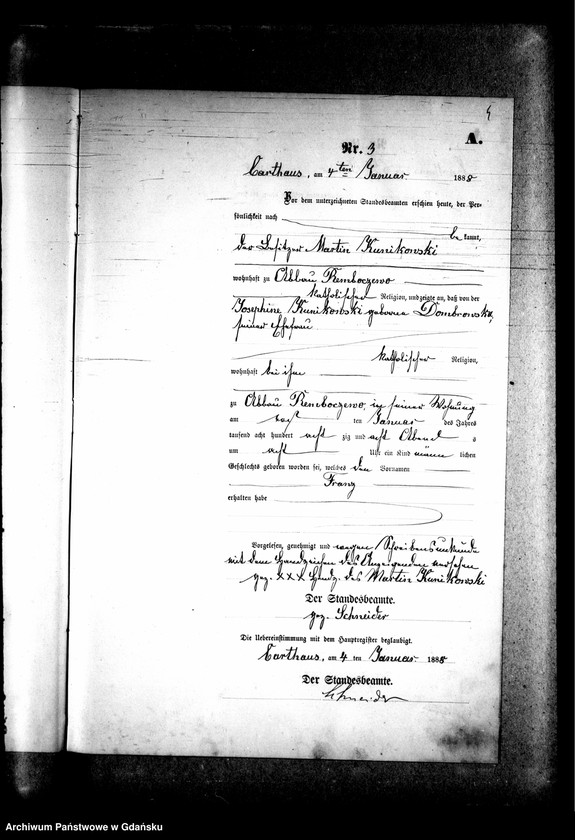 A.
Nr. 3
Carthaus, am 4ten Januar 1888
Vor dem unterzeichneten Standesbeamten erschien heute, der Per-
sönlichkeit nach
be kannt,
der Besitzer Martin Kunikowski
wohnhaft zu Abbau Remboczewo
katholischer Religion, und zeigte an, daß von der
Josephine Kunikowski geborene Dombrowski,
seiner Ehefrau
katholischer Religion,
wohnhaft bei ihm
zu Abbau Remboczewo, in seiner Wohnung
am ten Januar des Jahres
tausend acht hundert acht zig und acht Abend s
um acht Uhr ein Kind männ lichen
Geschlechts geboren worden sei, welches den Vornamen
Franz
erhalten habe
Vorgelesen, genehmigt und wegen Schreibensunkunde
mit dem Handzeichen des Anzeigenden versehen
gez. XXX Handz. des Martin Kunikowski
Der Standesbeamte.
gez. Schneider
Die Uebereinstimmung mit dem Hauptregister beglaubigt.
Carthaus, am 4 ten Januar 1888
Der Standesbeamte.
Schneider
Archiwum Państwowe w Gdańsku